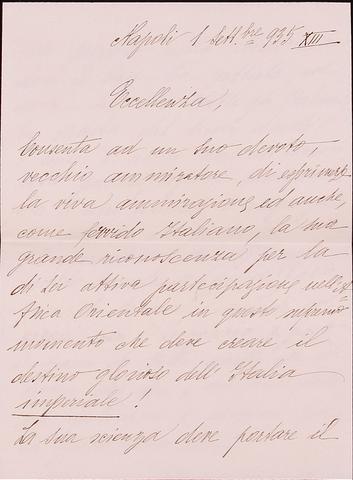 Napoli 1 Sett.bre 935 XIII
Eccellenza,
Consenta ad un suo devoto,
vecchio ammiratore, di esprimerle
la viva ammirazione, ed anche,
come fervido Italiano, la sua
grande riconoscenza per la
di Lei attiva partecipazione nell'A=
frica Orientale in questo supremo
momento che deve creare il
destino glorioso dell'Italia
imperiale!
La sua scienza deve portare il